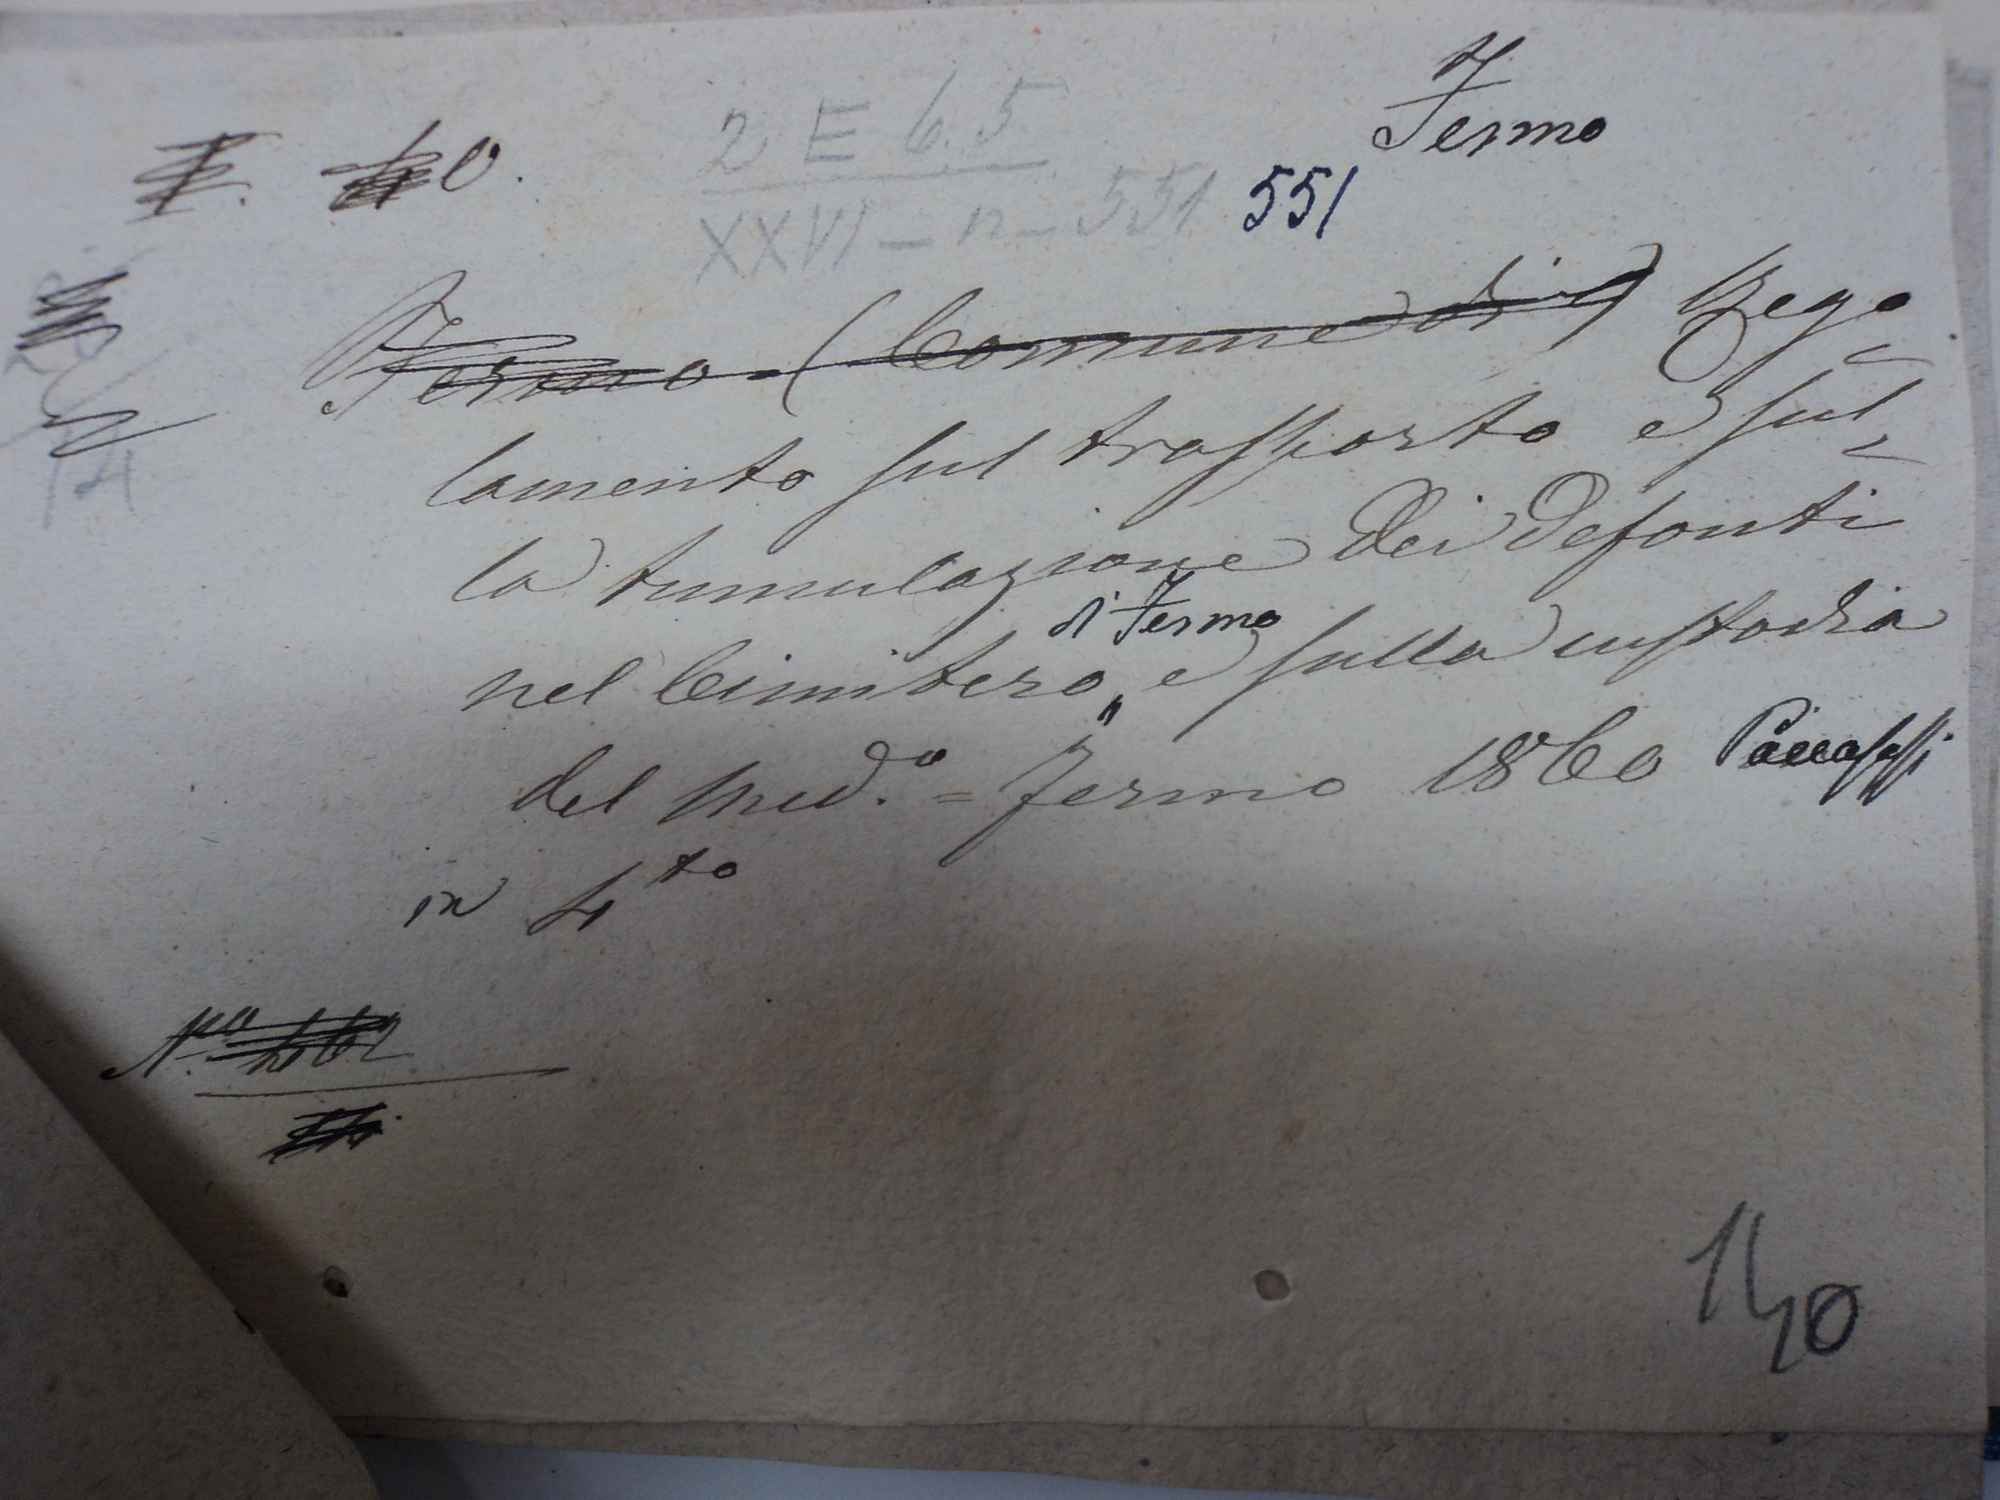 Fermo
2 E 6.5
O.
XXVI - n - 551 551
Fermo (Comune di) Rego-
lamento sul trasporto e sul-
la tumulazione dei defonti
di Fermo
nel Cimitero, e sulla custodia
del med.o = Fermo 1860 Paccasassi
in 4to
14
140